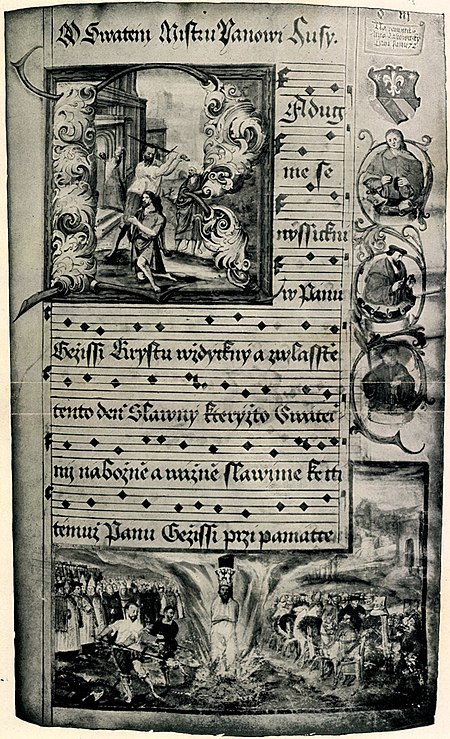 O Swatem Mistru Janowi Husy.
Radug
me se
wssickni
w Panu
Gežissi Krystu wždyckny a zwlasstie
tento den Slawny kteryžto Swatei
mi nabožnie a wažnie slawime ke cti
temuž Panu Gežissi przi pamatce